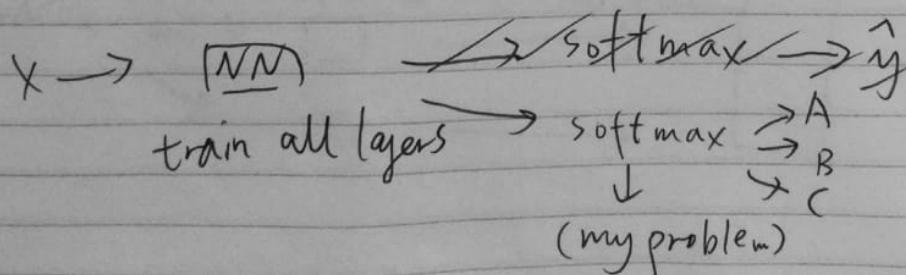 X → NN → softmax → ŷ
train all layers → softmax → A
→ B
↓ → C
(my problem)